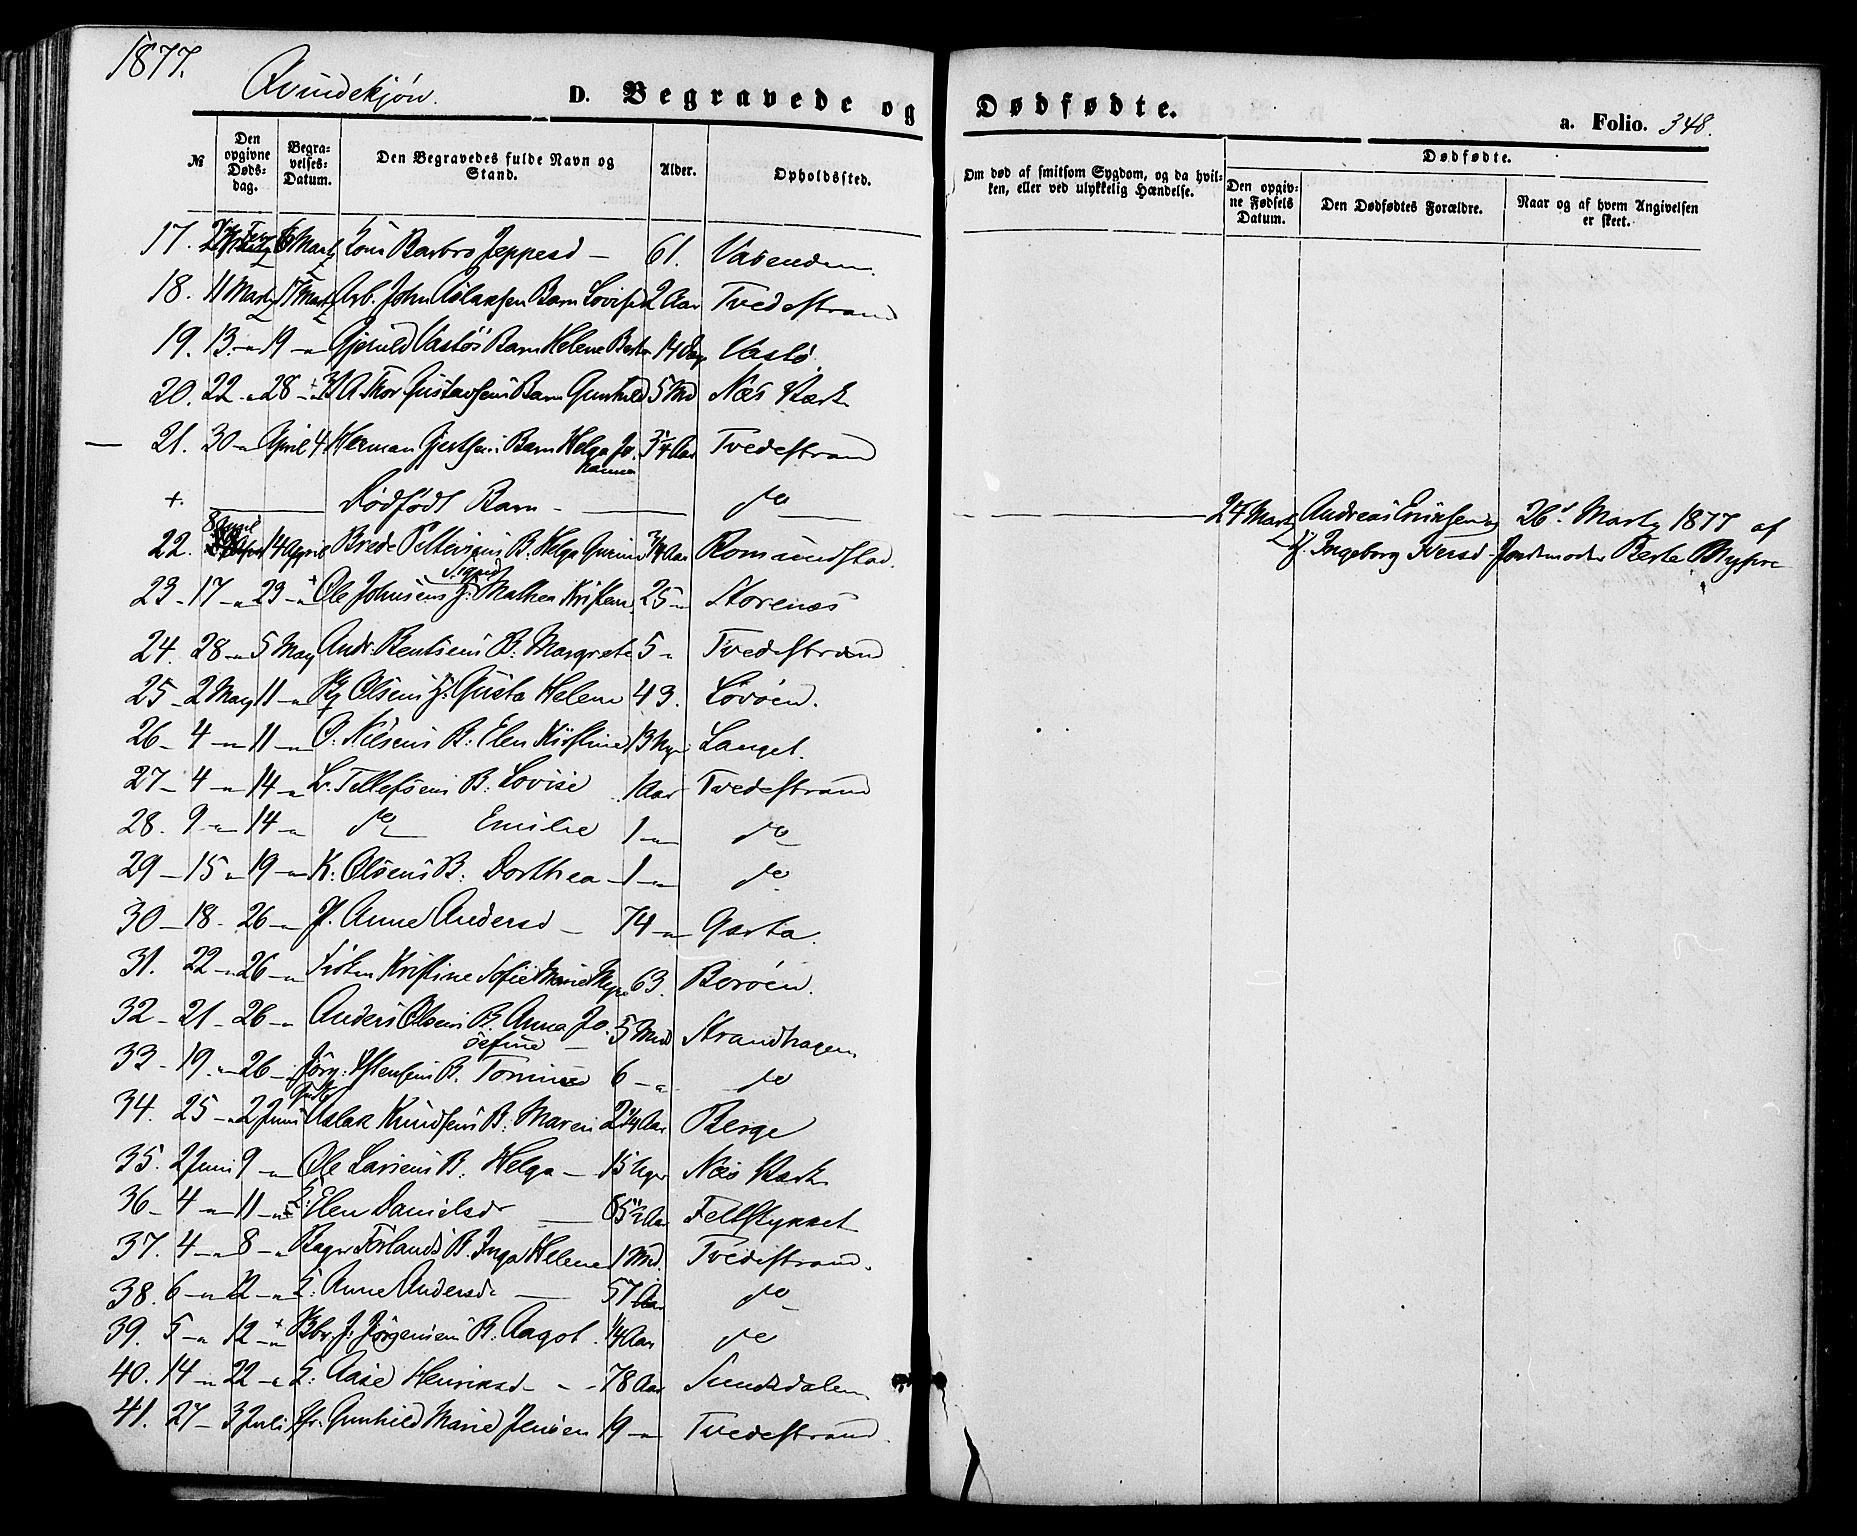 1877.
Qvindekjøn.
D. Begravede og Dødfødte.
a. Folio. 348.
№
Den opgivne Døds-dag.
Begra-velses-Datum.
Den Begravedes fulde Navn og Stand.
Alder.
Opholdssted.
Om død af smitsom Sygdom, og da hvil-ken, eller ved ulykkelig Hændelse.
Dødfødte.
Den opgiv-ne Fødsels Datum.
Den Dødfødtes Forældre.
Naar og af hvem Angivelsen er skeet.
17. 6 Martz Kone Barbro Jeppesd – 61. Vasenden
18. 11 Martz 17 Martz Arb. John Aslaksen Barn Lovise 2 Aar Tvedestrand
19. 13. – 19 – Gjeruld Vastøs Barn Helene Berta 14 Dag Vastø.
20. 22 – 28 – Thor Gustavsens Barn Gunhild 5 Md Næs Værk
21. 30 – April 4 Herman Gjertsens Barn Helga Jo.
hanna 3 1/4 Aar Tvedestrand
+. Dødfødt Barn – do
24 Martz Andreas Eriksen og 26d. Martz 1877 af
H. Ingeborg Iversd. Jordmoder Berte Myhre
22. 8 April 14 April Brede Pettersens B. Helga 3/4 Aar Romundstad.
23 – 17 – 23 – Ole Johnsens H. Mathea Kristen. 25 – Storenæs
Sigrid
24. 28 – 5 May Andr. Bentsens B. Margrete 5 – Tvedestrand
25 – 2 May 11 – Olsens H. Gusta Helene 43. Lovøen.
26 – 4 – 11 – O. Nilsens B: Elen Kirstine 13 Langet.
27 – 4 – 14 – L. Tellefsens B: Lovise 1 Aar Tvedestrand
28. 9 – 14 – do Emilie 1 – do
29 – 15 – 19 – K: Olsens B: Dorthea – 1 – do
30 – 18 – 26 – Anne Andersd – 74 – Garta.
31. 22 – 26 – Frøken Kristine Sofie Marie 63. Borøen.
32 – 21 – 26 – Anders Olsens B. Anna Jo.
sefine 5 Mnd Strandhagen
33 – 19 – 26 – Jørg: B. Tomine 6 – do
34. 25 – 2 Juni Aslak Knudsens B. Maren 2 1/4 Aar Berge
35. 2 Juni 9 – Ole Larsens B. Helga – 15 Uger Næs Værk
36 – 4 – 11 – E: Elen Danielsdr 85 1/2 Aar Fellstykket
37. 4 – 8 – Bager Førlands B. Inga Helene 1 Md. Tvedestrand.
38. 6 – – E. Anne Andersdr 57 Aar do
39. 5 – 12 – J: Jørgensens B. Aagot. 1/4 Aar do
40. 14 – 22 – E: Aase Henriksd – 78 Aar Sundsdalen
41. 27 – 3 Juli Gunhild Marie Jensen 19 – Tvedestrand